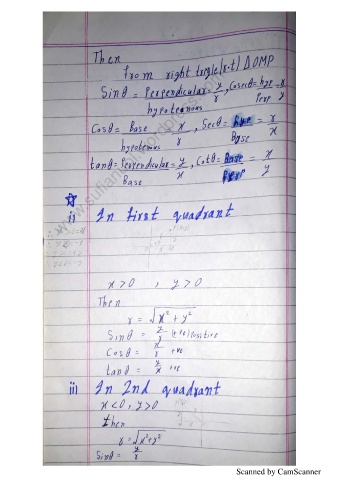 Then
from right tangle(r.t) ΔOMP
Sinθ = Perpendicular/hypotenious = y/r, Cosecθ = hyp/Perp = r/y
Cosθ = Base/hypotenious = x/r, Secθ = hyp/Base = r/x
tanθ = Perpendicular/Base = y/x, Cotθ = Base/Perp = x/y
i) In first quadrant
x>0 , y>0
Then
r = √x²+y²
Sinθ = y/r (+ve) Positive
Cosθ = x/r +ve
tanθ = y/x +ve
ii) In 2nd quadrant
x<0, y>0
then
r = √x²+y²
Sinθ = y/r
Scanned by CamScanner